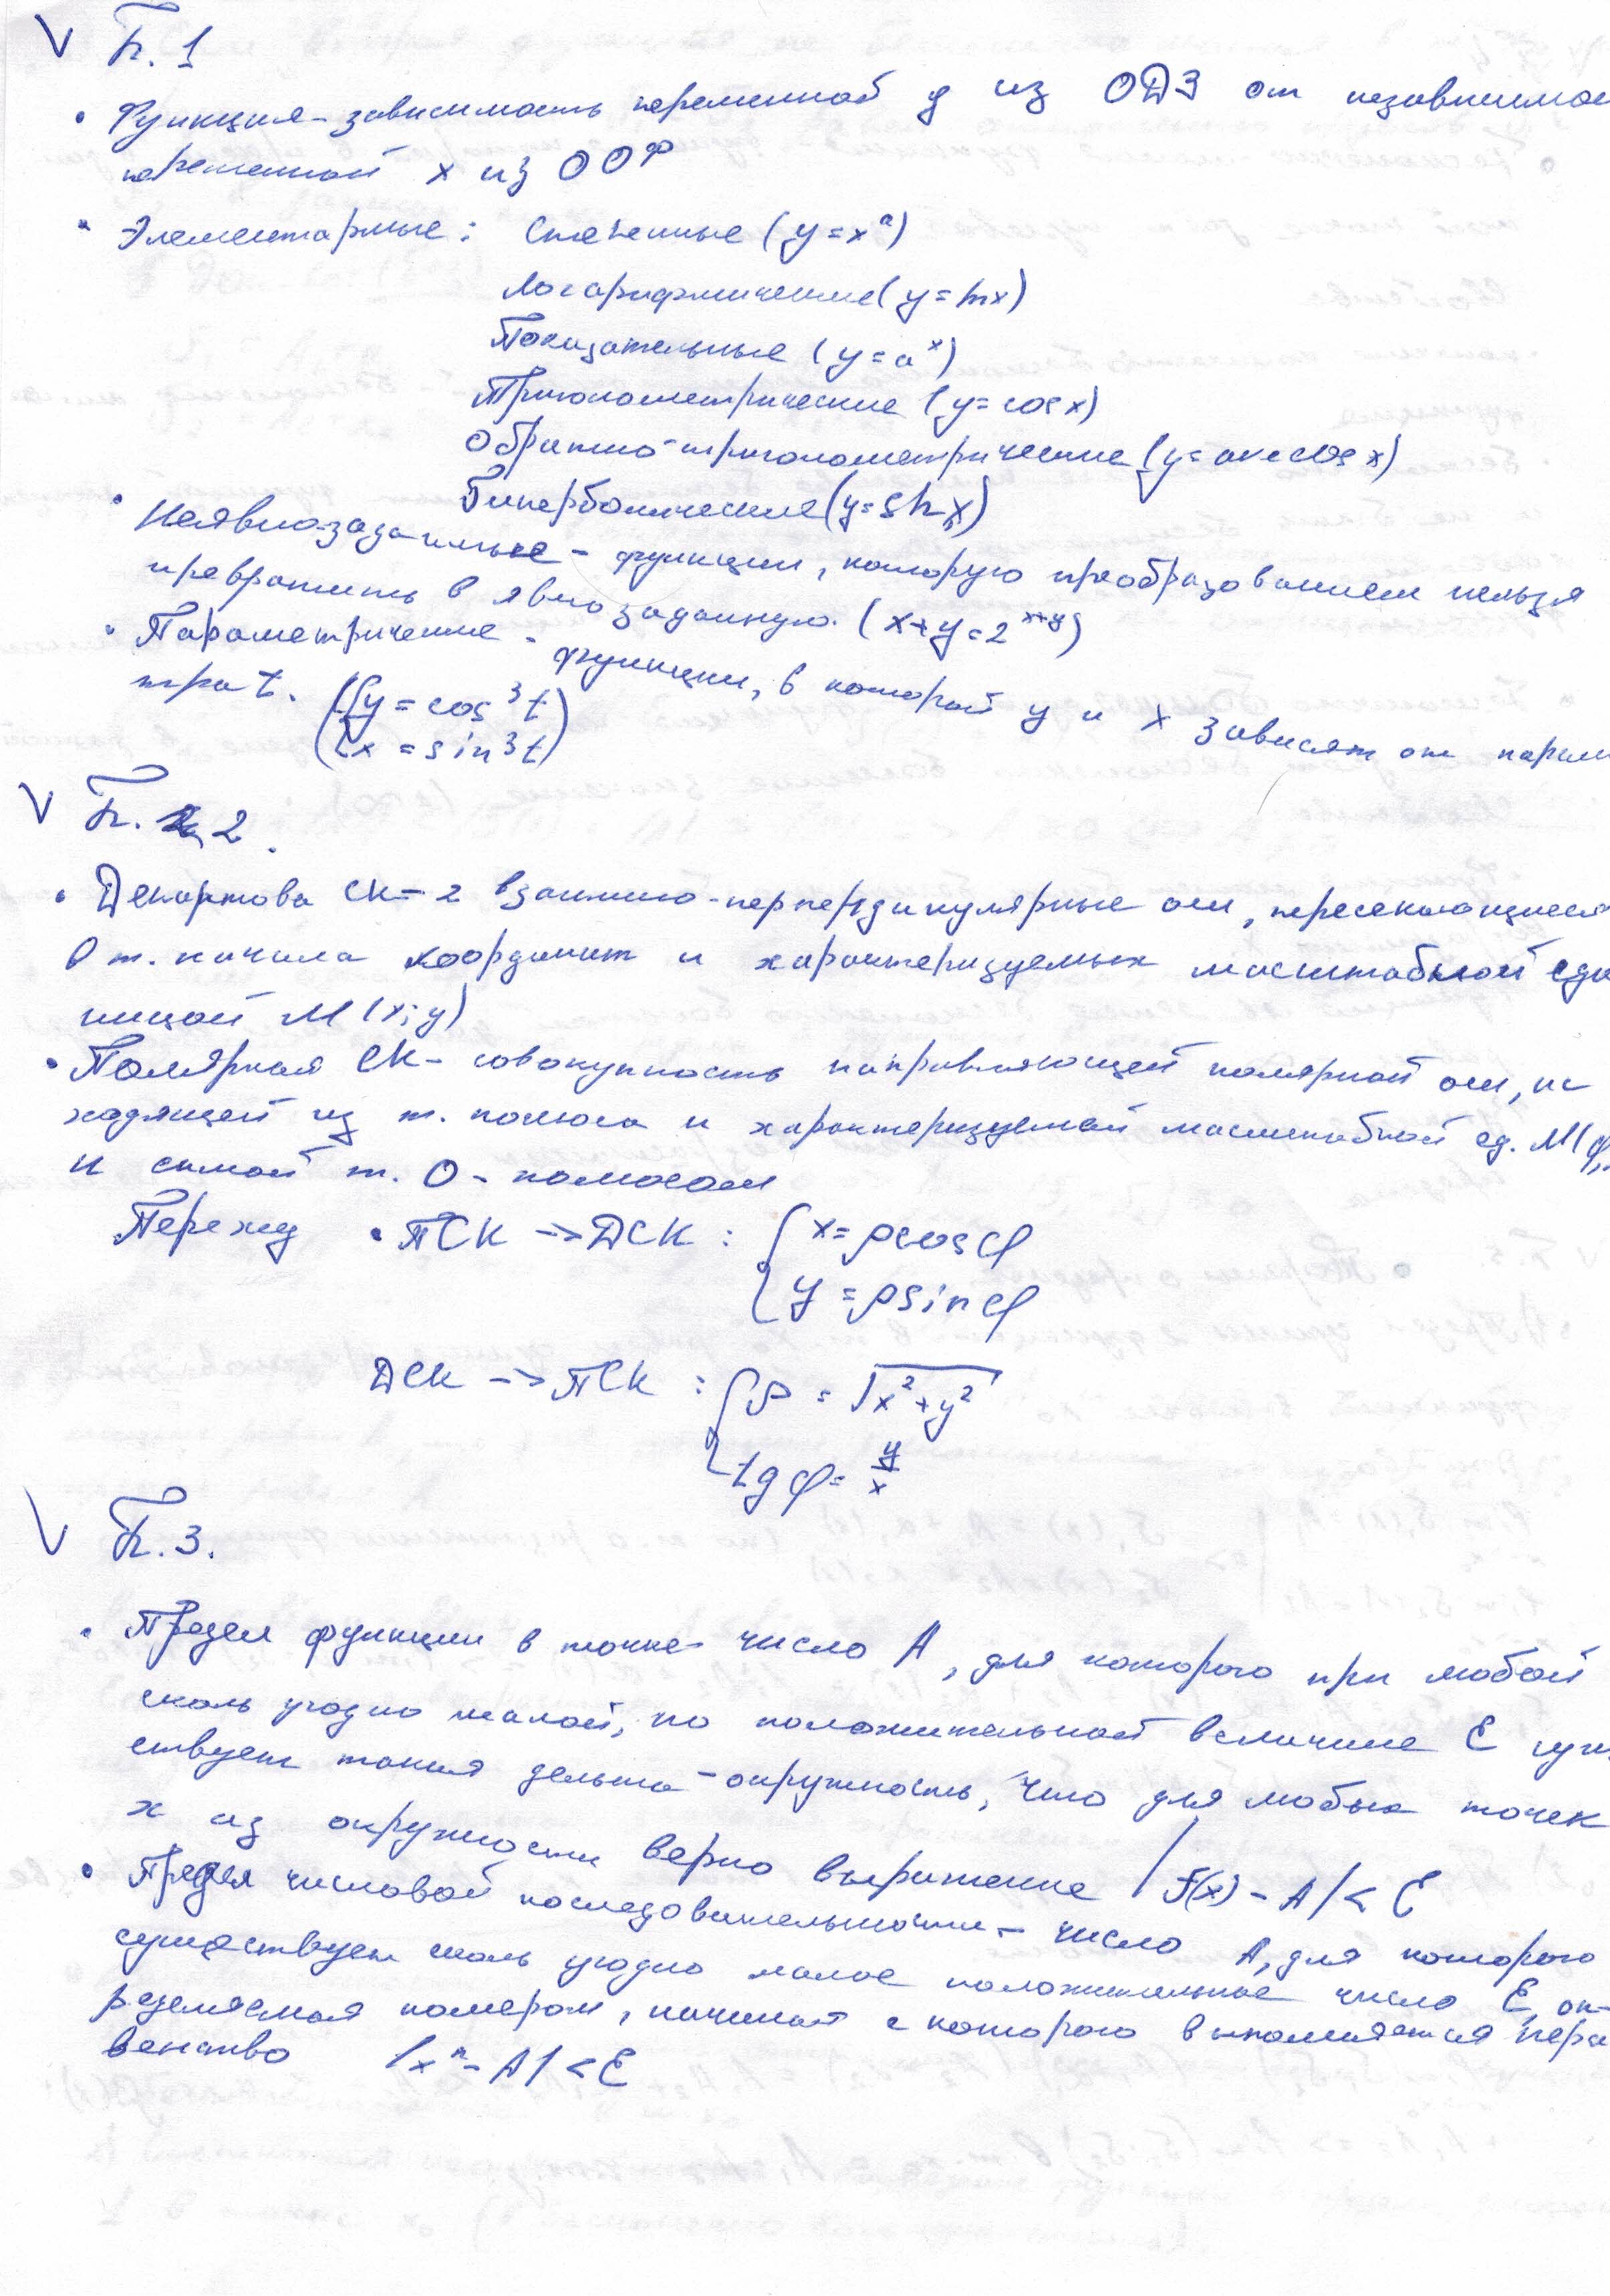 V Б. 1
• Функция - зависимость переменной y из ОДЗ от независимой
переменной x из ООФ
• Элементарные: Степенные (y = x^a)
Логарифмические (y = ln x)
Показательные (y = a^x)
Тригонометрические (y = cos x)
Обратно-тригонометрические (y = arccos x)
Гиперболические (y = sh x)
• Неявнозаданные - функции, которую преобразованием нельзя
превратить в явнозаданную. (x+y = 2^{x+y})
• Параметрические - функции, в которой y и x зависят от параме
тра t. ({ y = cos^3 t
x = sin^3 t)
V Б. 2.
• Декартова СК - 2 взаимно-перпендикулярные оси, пересекающиеся
в т. начала координат и характеризуемых масштабной еди
ницой M (x; y)
• Полярная СК - совокупность направляющей полярной оси, ис
ходящей из т. полюса и характеризуемой масштабной ед. M (φ,
и самой т. O - полюсом
Переход • ПСК -> ДСК : { x = ρcosφ
y = ρsinφ
ДСК -> ПСК : { ρ = √(x^2 + y^2)
tg φ = y/x
V Б. 3.
• Предел функции в точке - число A, для которого при любой
сколь угодно малой, но положительной величине ε сущ
ествует такая дельта-окружность, что для любых точек
x из окружности верно выражение |f(x) - A| < ε
• Предел числовой последовательности - число A, для которого
существует сколь угодно малое положительное число ε, оп-
ределяемая номером, начиная с которого выполняется нера
венство |x^n - A| < ε